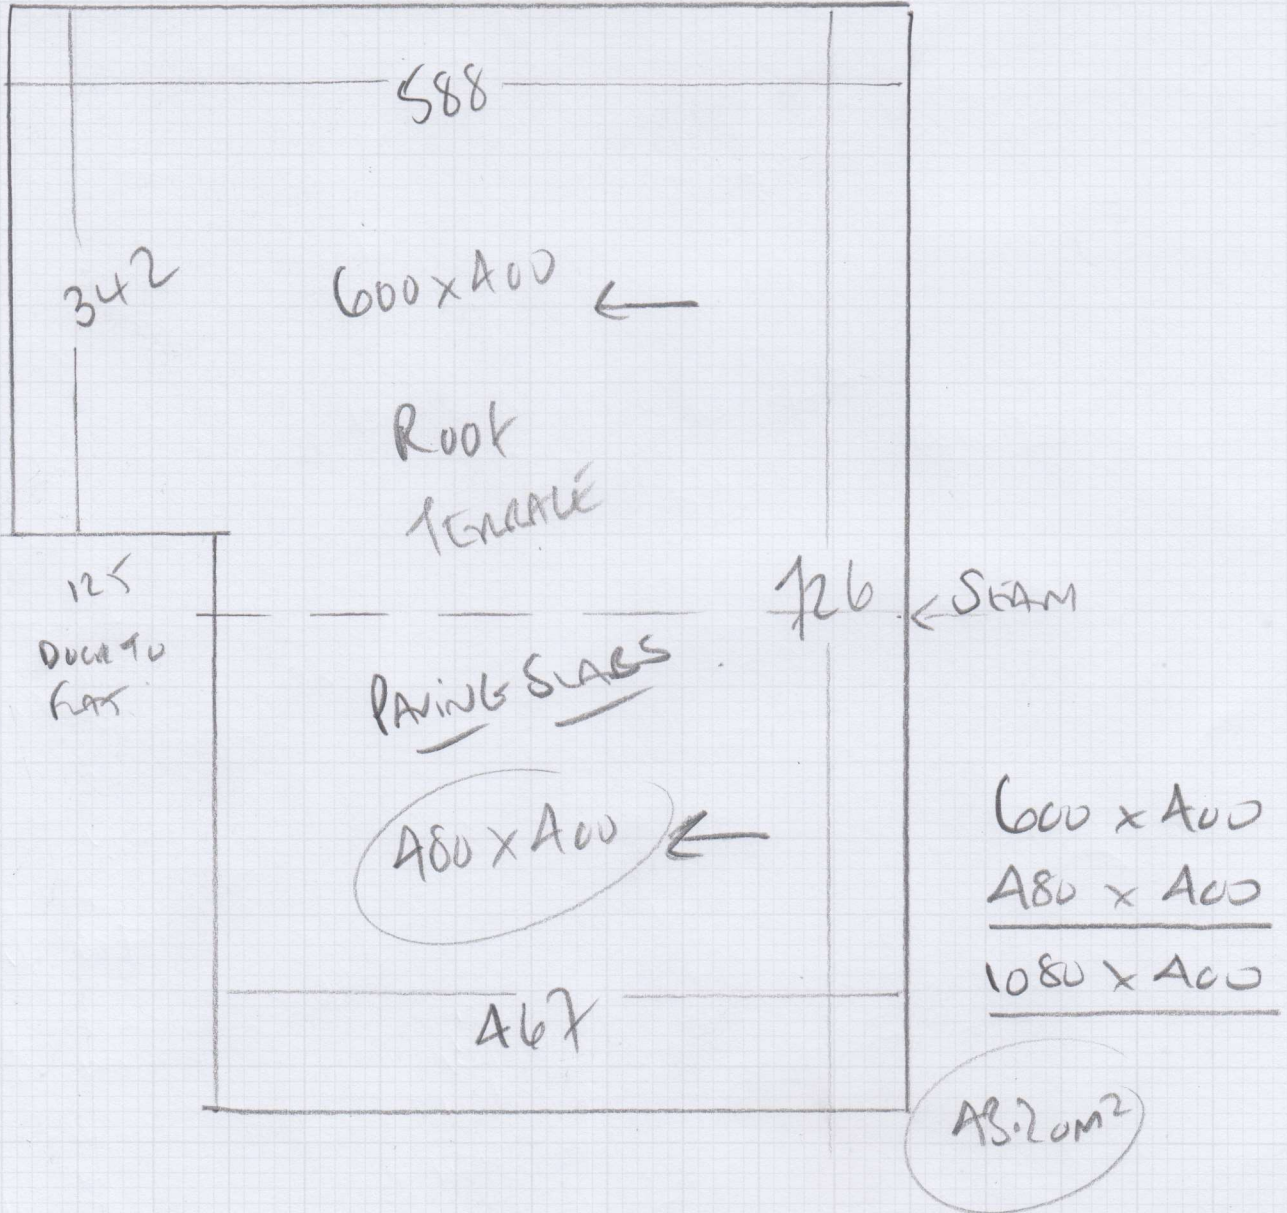 588
342
600 x 400
ROOF
TERRACE
125
DOOR TO
FLAT
726
SEAM
PAVING SLABS
480 x 400
467
600 x 400
480 x 400
1080 x 400
43.20m²